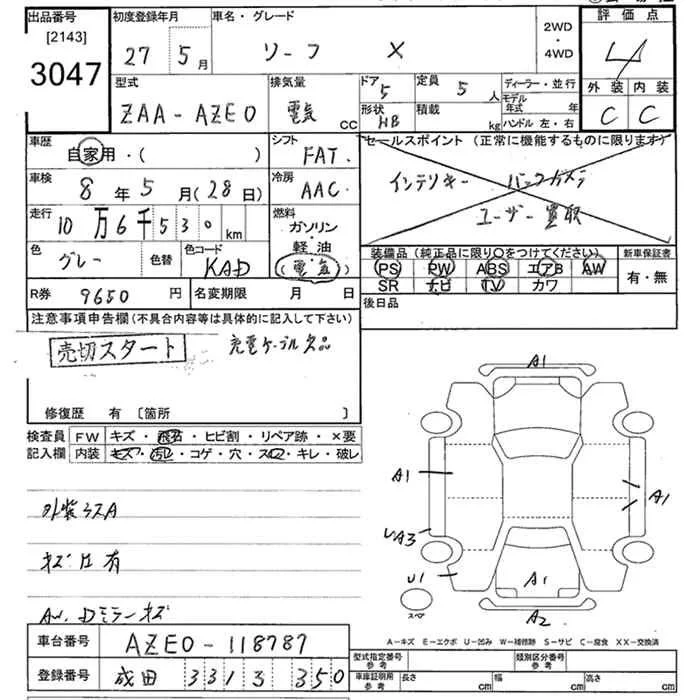 出品番号 初度登録年月 車名・グレード 2WD・4WD 評価点
[2143]
3047 27 5月 リーフ X 4
型式 排気量 ドア 定員 ディーラー・並行 外装 内装
ZAA-AZE0 電気 CC 5 5人 モデル年式 年 C C
形状 HB 積載 kg ハンドル 左・右
車歴 シフト セールスポイント (正常に機能するものに限ります)
自家用・( ) FAT.
車検 冷房 インテリキー バックカメラ
8年5月(28日) AAC.
走行 燃料 ユーザー買取
10万6千530km ガソリン・軽油(電気)
色 色替 色コード 装備品 (純正品に限り○をつけてください) 新車保証書
グレー KAD PS PW ABS エアB AW 有・無
SR ナビ TV カワ
R券 9650円 名変期限 月 日 後日品
注意事項申告欄 (不具合内容等は具体的に記入して下さい)
売切スタート 充電ケーブル欠品
修復歴 有 [箇所 ]
検査員 FW キズ・飛石・ヒビ割・リペア跡・×要
記入欄 内装 キズ・汚レ・コゲ・穴・スレ・キレ・破レ
A1
A1
A1
UA3
U1
A1
スペア
A2
キズ凹有
AW. Dミラーキズ
A-キズ E-エクボ U-凹み W-補修跡 S-サビ C-腐食 XX-交換済
車台番号 AZE0-118787 型式指定番号 参考 類別区分番号 参考
登録番号 成田 331 ろ 350 車庫証明用 参考 長さ cm 幅 cm 高さ cm